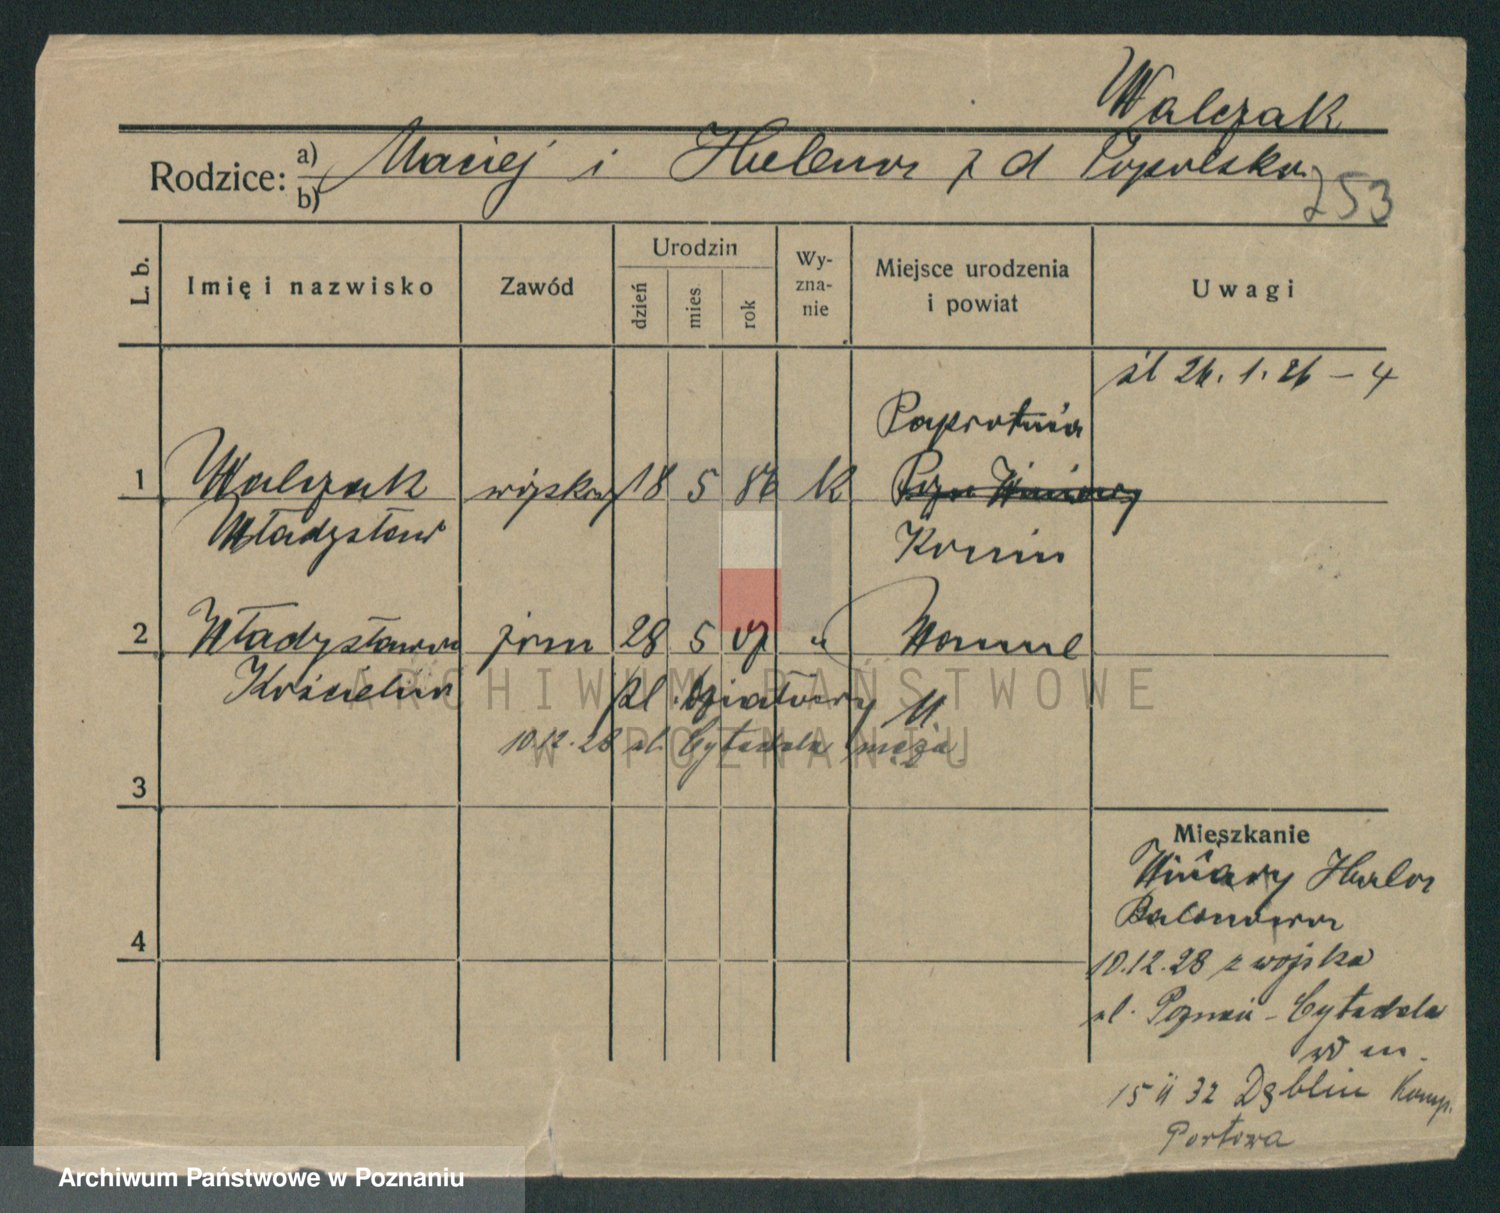 Walczak
Rodzice: a) b) Maciej i Helena z d Popolska
253
L. b.
Imię i nazwisko
Zawód
Urodzin
dzień
mies
rok
Wy-
zna-
nie
Miejsce urodzenia
i powiat
Uwagi
śl 26. 1. 26 – 4
Paprotnia
1 Walczak wojskowy 18 5 86 K
Władysław
Konin
2 Władysława żona 28 5 07 "
Kościelna
pl. Działowy
10.12.28 ul. Cytadela męża
3
Mieszkanie
Winiary Hala
Balonowa
4
10.12.28 z wojska
ul. Poznań - Cytadela
w m.
15 II 32 Dęblin Komp.
Portowa
ARCHIWUM PAŃSTWOWE
W POZNANIU
Archiwum Państwowe w Poznaniu